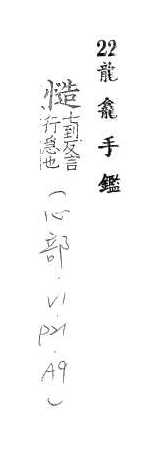 22龍龕手鑑
慥七到反言
行急也
(心部·V1·P21·A9)